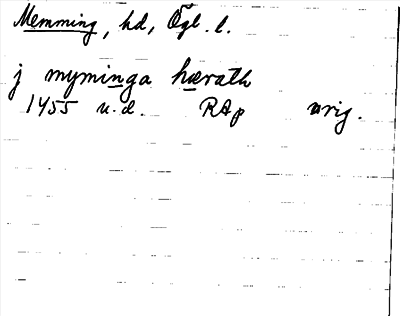 Memming, hd, Ögl. l.
j myminga hærath
1455 u.d. RAp orig.